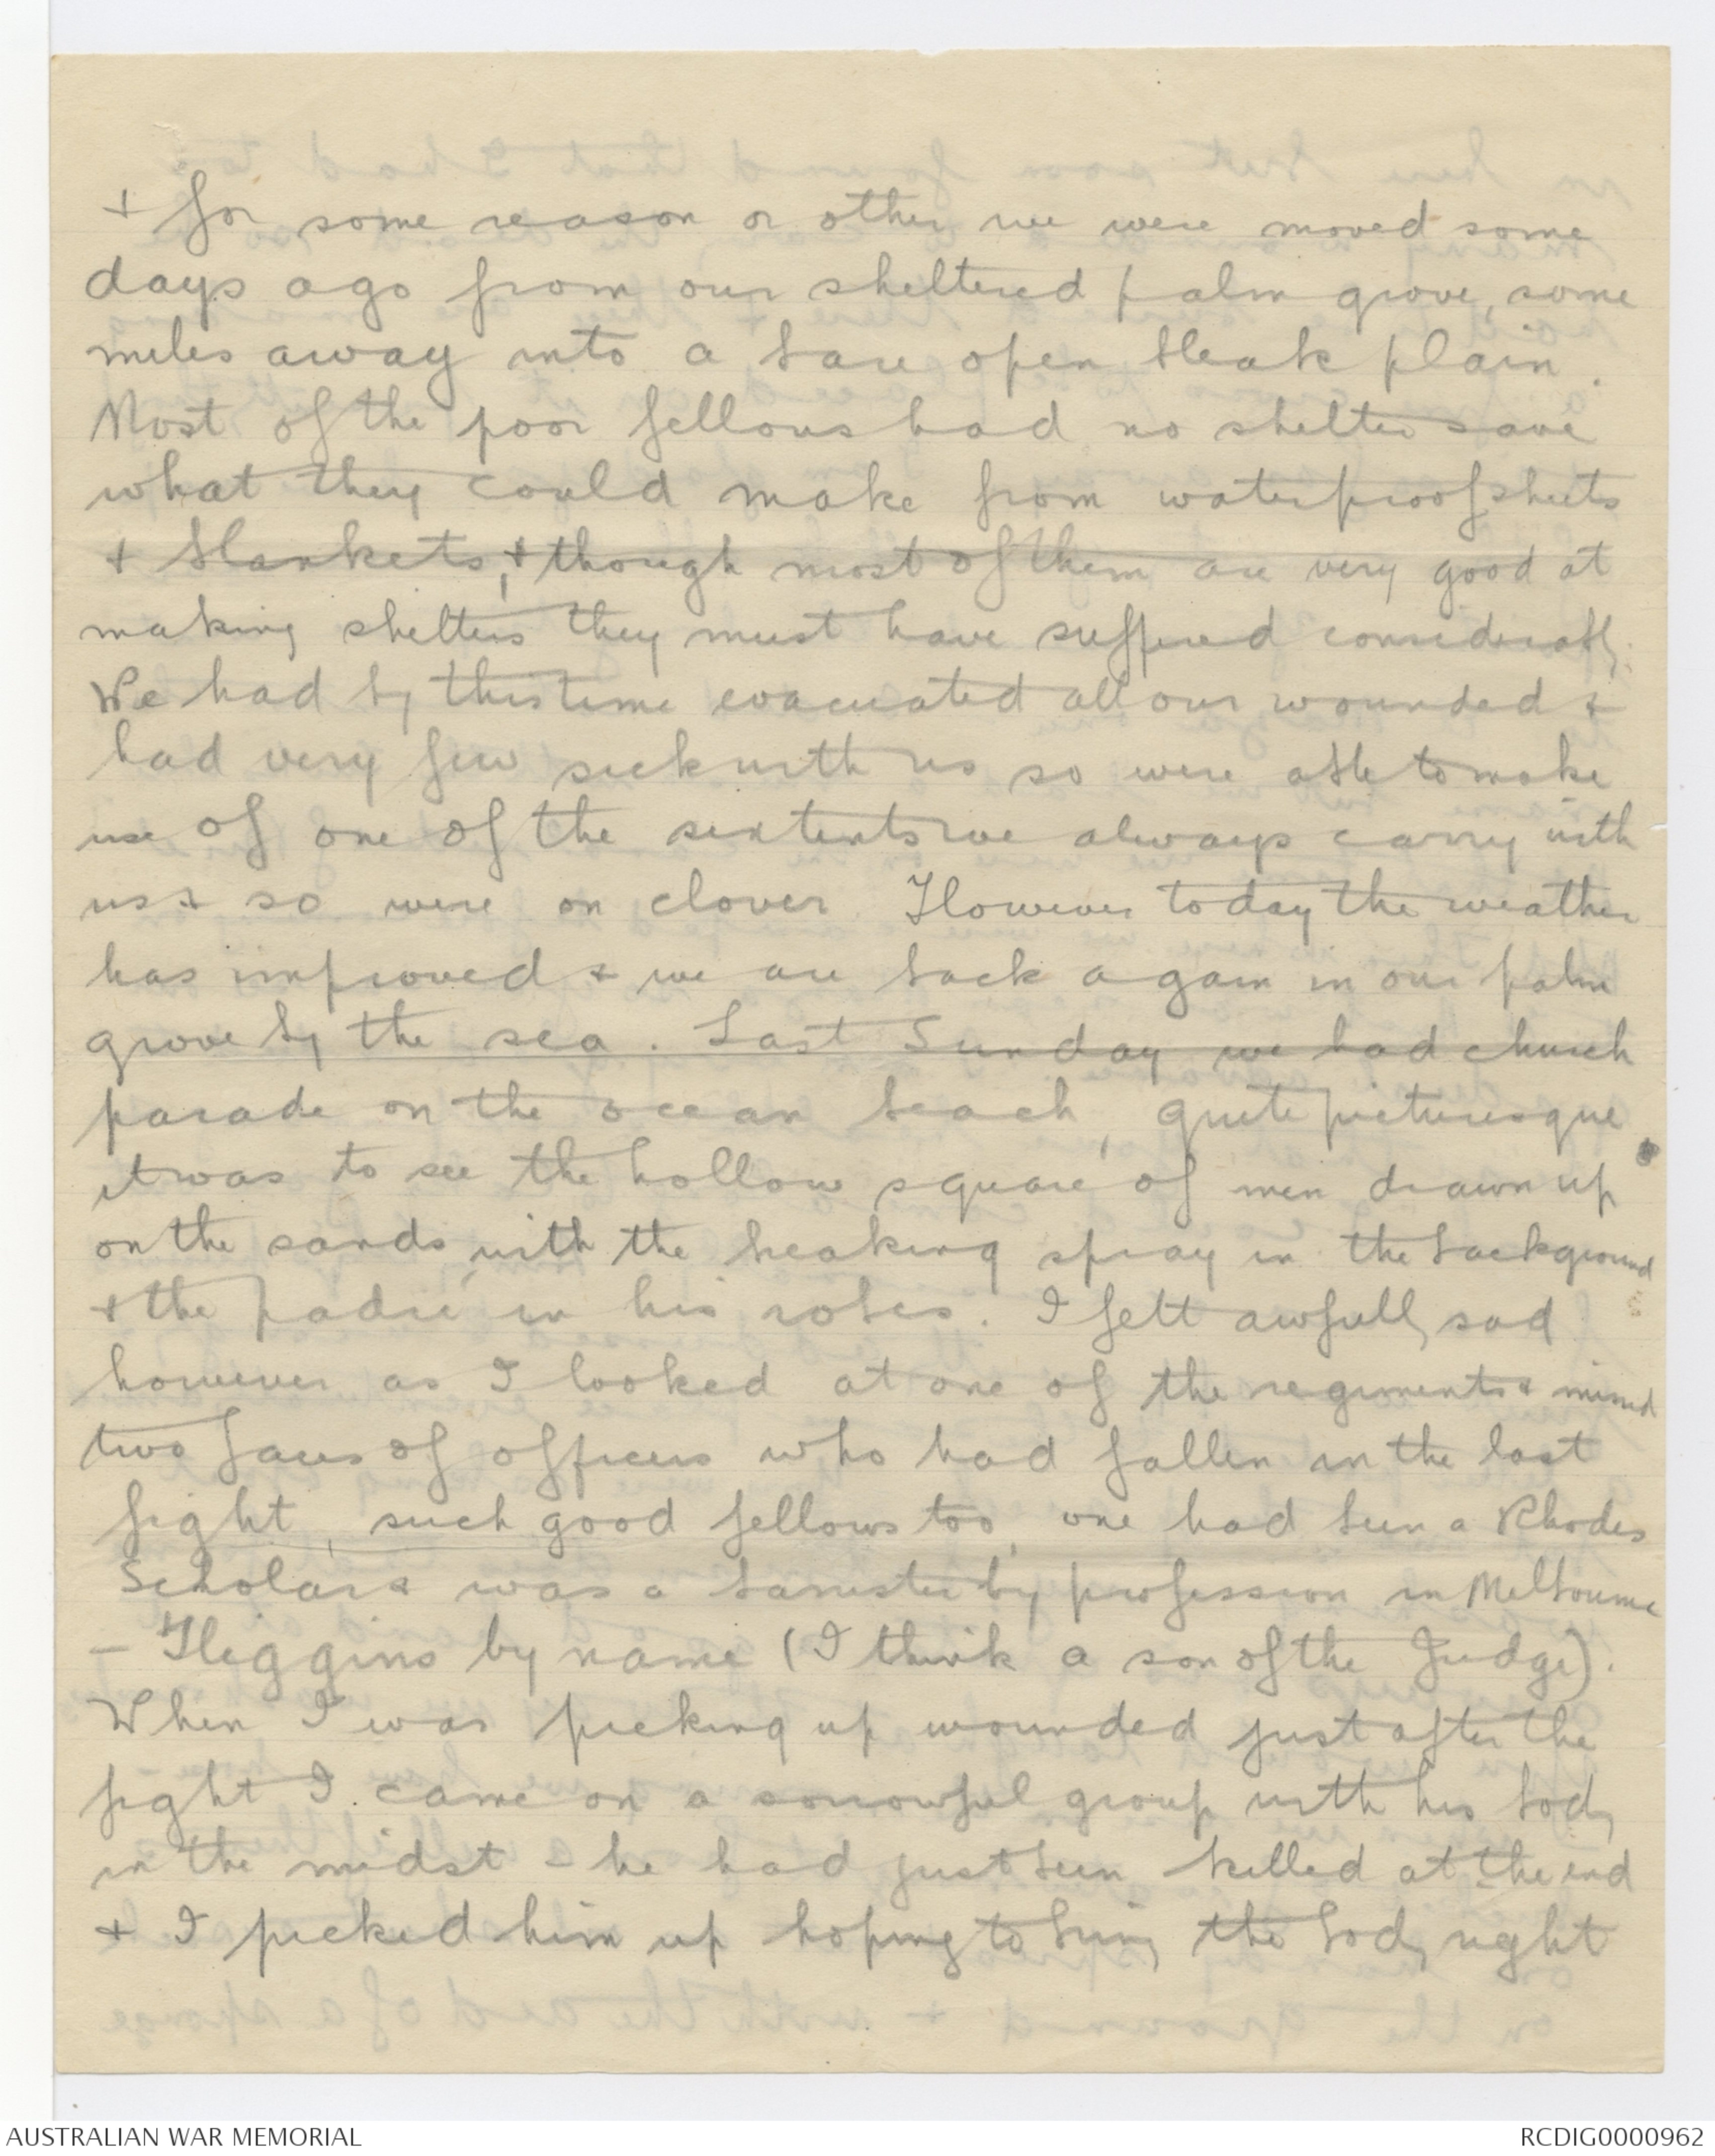 + for some reason or other we were moved some
days ago from our sheltered palm grove, some
miles away into a bare open bleak plain.
Most of the poor fellows had no shelter save
what they could make from waterproof sheets
+ blankets, + though most of them are very good at
making shelters they must have suffered considerably.
We had by this time evacuated all our wounded &
had very few sick with us so were able to make
use of one of the six tents we always carry with
us & so were on clover However today the weather
has improved & we are back again in our palm
grove by the sea. Last Sunday we had church
parade on the ocean beach, quite picturesque
it was to see the hollow square of men drawn up
on the sands, with the breaking spray in the background
+ the padre in his robes. I felt awfully sad
however as I looked at one of the regiments & missed
two faces of officers who had fallen in the last
fight, such good fellows too, one had been a Rhodes
Scholar & was a barrister by profession in Melbourne
- Higgins by name (I think a son of the Judge).
When I was picking up wounded just after the
fight I came on a sorrowful group with his body
in the midst - he had just been killed at the end
+ I picked him up hoping to bring the body right
AUSTRALIAN WAR MEMORIAL
RCDIG0000962